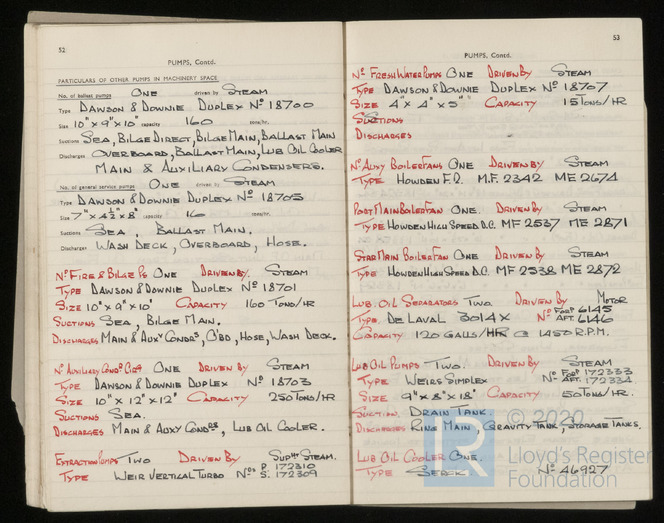 52
PUMPS, Contd.
PARTICULARS OF OTHER PUMPS IN MACHINERY SPACE
No. of ballast pumps ONE driven by STEAM
Type DAWSON & DOWNIE DUPLEX No 18700
Size 10" x 9" x 10" capacity 160 tons/hr.
Suctions SEA, BILGE DIRECT, BILGE MAIN, BALLAST MAIN
Discharges OVERBOARD, BALLAST MAIN, LUB OIL COOLER
MAIN & AUXILIARY CONDENSERS.
No. of general service pumps ONE driven by STEAM
Type DAWSON & DOWNIE DUPLEX No 18705
Size 7" x 4½" x 8" capacity 16 tons/hr.
Suctions SEA, BALLAST MAIN.
Discharges WASH DECK, OVERBOARD, HOSE.
No FIRE & BILGE Ps ONE DRIVEN BY. STEAM
TYPE DAWSON & DOWNIE DUPLEX No 18701
SIZE 10" x 9" x 10" CAPACITY 160 TONS/HR
SUCTIONS SEA, BILGE MAIN.
DISCHARGES MAIN & AUXY CONDRS, O'BD, HOSE, WASH DECK.
No AUXILIARY CONDR CIRCG ONE DRIVEN BY STEAM
TYPE DAWSON & DOWNIE DUPLEX No 18703
SIZE 10" x 12" x 12" CAPACITY 250 TONS/HR
SUCTIONS SEA.
DISCHARGES MAIN & AUXY CONDRS, LUB OIL COOLER.
EXTRACTION PUMPS TWO DRIVEN BY SUPHT STEAM.
TYPE WEIR VERTICAL TURBO Nos P. 172310 S. 172309
53
PUMPS, Contd.
No FRESH WATER PUMPS ONE DRIVEN BY STEAM
TYPE DAWSON & DOWNIE DUPLEX No 18707
SIZE 4" x 4" x 5" CAPACITY 15 TONS/HR
SUCTIONS
DISCHARGES
No AUXY BOILER FANS ONE DRIVEN BY STEAM
TYPE HOWDEN F.D. M.F. 2342 ME 2674
PORT MAIN BOILER FAN ONE. DRIVEN BY STEAM
TYPE HOWDEN HIGH SPEED D.C. MF 2537 ME 2871
STAR MAIN BOILER FAN ONE DRIVEN BY STEAM
TYPE HOWDEN HIGH SPEED D.C. MF 2538 ME 2872
LUB. OIL SEPARATORS TWO. DRIVEN BY MOTOR
TYPE. DE LAVAL 3014X Nos FORD 6145 AFT. 6146
CAPACITY 120 GALLS/HR @ 1450 R.P.M.
LUB OIL PUMPS TWO. DRIVEN BY STEAM
TYPE WEIRS SIMPLEX Nos FORD 172333 AFT. 172334
SIZE 9" x 8" x 18" CAPACITY 50 TONS/HR.
SUCTION. DRAIN TANK
DISCHARGES RING MAIN, GRAVITY TANK, STORAGE TANKS.
LUB OIL COOLER ONE.
TYPE SERCK. No 46927
© 2020
LR
Lloyd's Register
Foundation